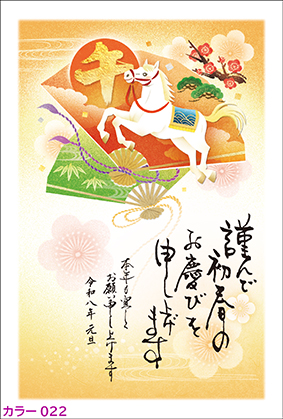 午
謹んで
初春の
お慶びを
申し上げます
本年も宜しく
お願い申し上げます
令和八年 元旦
カラー 022